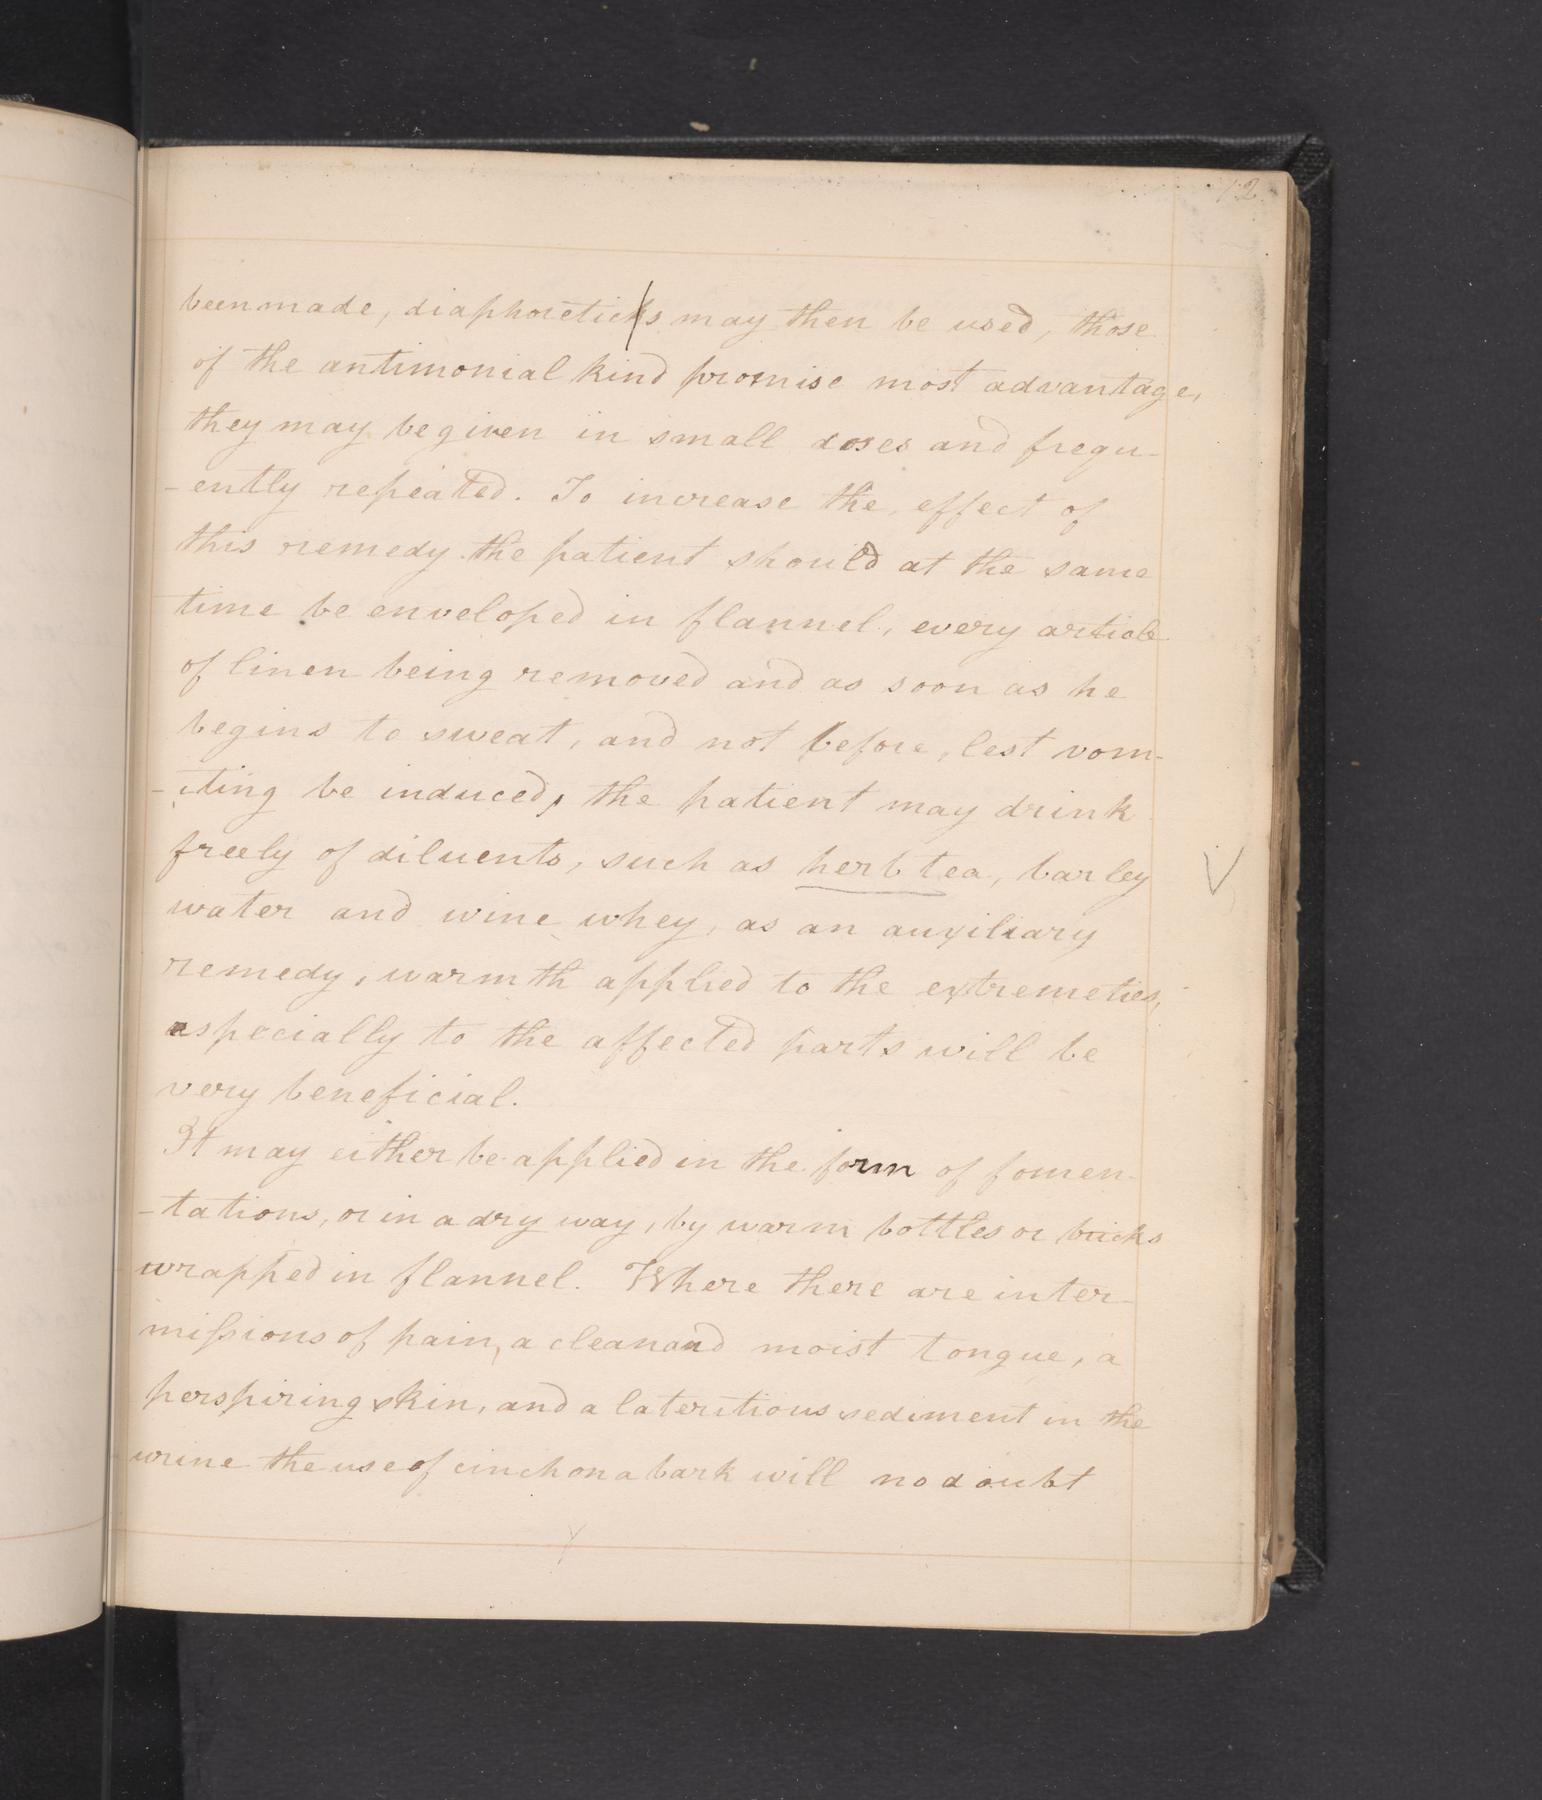 12.
been made, diaphoreticks may then be used, those
of the antimonial kind promise most advantage,
they may be given in small doses and frequ-
-ently repeated. To increase the effect of
this remedy the patient should at the same
time be enveloped in flannel, every article
of linen being removed and as soon as he
begins to sweat, and not before, lest vom-
-iting be induced, the patient may drink
freely of diluents, such as herb tea, barley
water and wine whey, as an auxiliary
remedy, warmth applied to the extremeties,
especially to the affected parts will be
very beneficial.
It may either be applied in the form of fomen-
-tations, or in a dry way, by warm bottles or bricks
wrapped in flannel. Where there are inter-
miſsions of pain, a clean and moist tongue, a
perspiring skin, and a lateritious sediment in the
urine the use of cinchona bark will no doubt